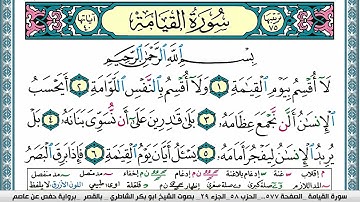 سُورَةُ الْقِيَامَةِ
بِسْمِ ٱللَّهِ ٱلرَّحْمَٰنِ ٱلرَّحِيمِ
لَآ أُقْسِمُ بِيَوْمِ ٱلْقِيَٰمَةِ ١ وَلَآ أُقْسِمُ بِٱلنَّفْسِ ٱللَّوَّامَةِ ٢ أَيَحْسَبُ
ٱلْإِنسَٰنُ أَلَّن نَّجْمَعَ عِظَامَهُۥ ٣ بَلَىٰ قَٰدِرِينَ عَلَىٰٓ أَن نُّسَوِّىَ بَنَانَهُۥ ٤ بَلْ
يُرِيدُ ٱلْإِنسَٰنُ لِيَفْجُرَ أَمَامَهُۥ ٥ يَسْـَٔلُ أَيَّانَ يَوْمُ ٱلْقِيَٰمَةِ ٦ فَإِذَا بَرِقَ ٱلْبَصَرُ
سورة القيامة الصفحة ٥٧٧ الحزب ٥٨ الجزء ٢٩ بصوت الشيخ أبو بكر الشاطري بالقصر برواية حفص عن عاصم